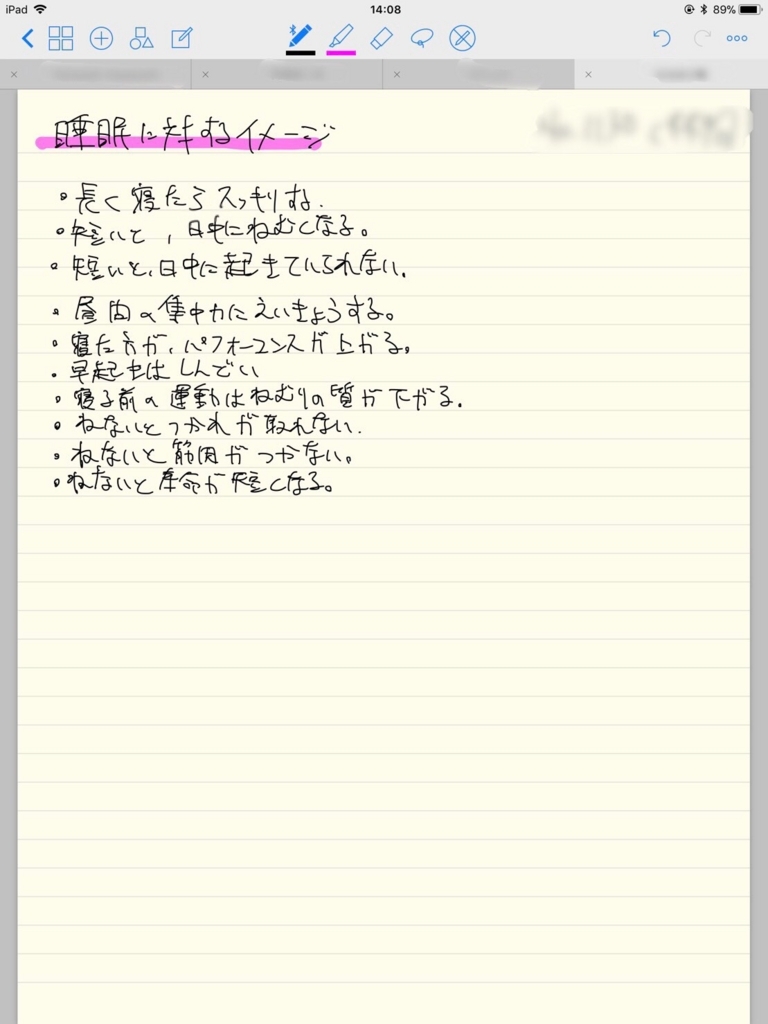 iPad 14:08 89%
睡眠に対するイメージ
・長く寝たらスッキリする.
・短いと,日中にねむくなる。
・短いと、日中に起きていられない.
・昼間の集中力にえいきょうする。
・寝た方が、パフォーマンスが上がる。
・早起きはしんどい
・寝る前の運動はねむりの質が下がる.
・ねないとつかれが取れない.
・ねないと筋肉がつかない。
・ねないと寿命が短くなる。